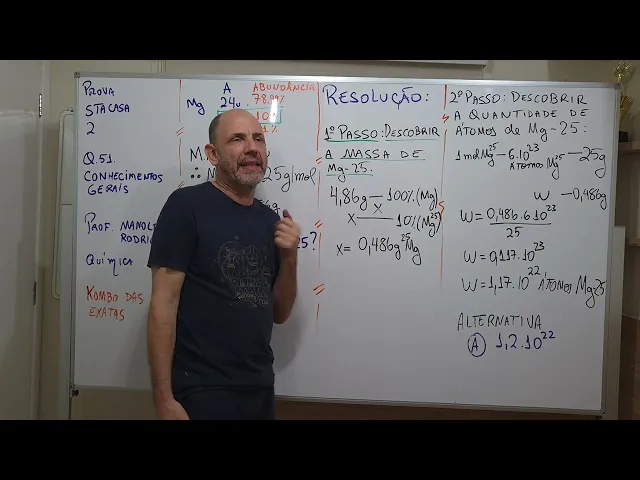 PROVA
STA CASA
2
Q.51.
CONHECIMENTOS
GERAIS
PROF. MANOEL
QUÍMICA
KOMBO DAS
EXATAS
A ABUNDÂNCIA
Mg 24u 78,99%
10%
1%
25g/mol
RESOLUÇÃO:
1º PASSO: DESCOBRIR
A MASSA DE
Mg-25.
4,86g — 100% (Mg)
x — 10% (Mg25)
x = 0,486g 25Mg
2º PASSO: DESCOBRIR
A QUANTIDADE DE
ÁTOMOS de Mg-25:
1 mol Mg25 — 6.10^23 ÁTOMOS Mg25 — 25g
W — 0,486g
W = 0,486.6.10^23
25
W = 0,117.10^23
W = 1,17.10^22 ÁTOMOS Mg25
ALTERNATIVA
A 1,2.10^22